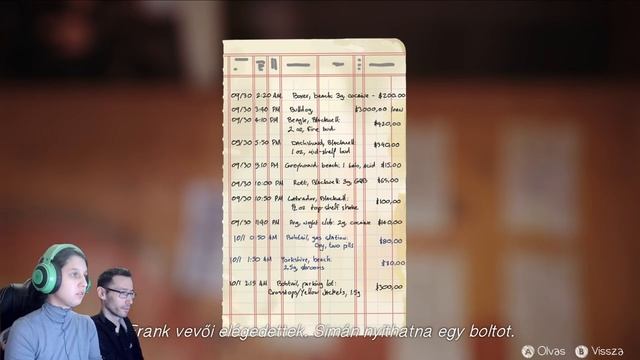 09/30 2:20 AM Boxer, beach: 3g cocaine - $200.00
09/30 3:40 PM Bulldog, $3000.00 loan
09/30 4:10 PM Beagle, Blackwell: $420.00
2 oz, fine bud
09/30 5:50 PM Dachshund, Blackwell: $340.00
1 oz, mid-shelf bud
09/30 9:10 PM Greyhound, beach: 1 tab, acid $15.00
09/30 10:00 PM Rott, Blackwell: 3g, GHB $65.00
09/30 10:30 PM Labrador, Blackwell: $100.00
½ oz top shelf shake
09/30 11:40 PM Pug, night club: 2g, cocaine $140.00
10/1 0:50 AM Bobtail, gas station: $80.00
Oxy, two pills
10/1 1:30 AM Yorkshire, beach: $80.00
2.5g shrooms
10/1 2:15 AM Bobtail, parking lot: $300.00
Crosstops/Yellow Jackets, 15g
Frank vevői elégedettek. Simán nyithatna egy boltot.
A Olvas B Vissza